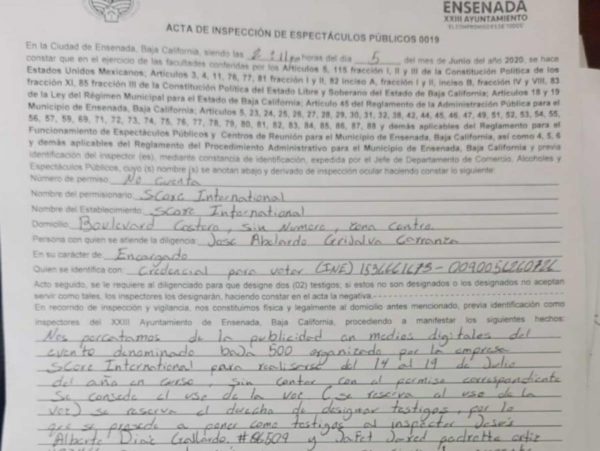 ENSENADA
XXIII AYUNTAMIENTO
ACTA DE INSPECCIÓN DE ESPECTÁCULOS PÚBLICOS 0019
En la Ciudad de Ensenada, Baja California, siendo las horas del día 5 del mes de Junio del año 2020, se hace
constar que en el ejercicio de las facultades conferidas por los Artículos 5, 115 fracción I, II y III de la Constitución Política de los
Estados Unidos Mexicanos; Artículos 3, 4, 11, 76, 77, 81 fracción I y II, 82 inciso A, fracción I y II, inciso B, fracción IV y VIII, 83
fracción XI, 85 fracción III de la Constitución Política del Estado Libre y Soberano del Estado de Baja California; Artículos 18 y 19
de la Ley del Régimen Municipal para el Estado de Baja California; Artículo 45 del Reglamento de la Administración Pública para el
Municipio de Ensenada, Baja California, Artículos 5, 23, 24, 25, 26, 27, 28, 29, 30, 31, 32, 38, 42, 44, 45, 46, 47, 49, 51, 52, 53, 54, 55,
56, 57, 59, 69, 71, 72, 73, 74, 75, 76, 77, 78, 79, 80, 81, 82, 83, 84, 85, 86, 87, 88 y demás aplicables del Reglamento para el
Funcionamiento de Espectáculos Públicos y Centros de Reunión para el Municipio de Ensenada, Baja California, así como 4, 5, 6
y demás aplicables del Reglamento del Procedimiento Administrativo para el Municipio de Ensenada, Baja California y previa
identificación del inspector (es), mediante constancia de identificación, expedida por el Jefe de Departamento de Comercio, Alcoholes y
Espectáculos Públicos, cuyo (s) nombre (s) se anotan abajo y derivado de inspección ocular haciendo constar lo siguiente:
Número de permiso: No Cuenta
Nombre del permisionario: SCore International
Nombre del Establecimiento: SCore International
Domicilio: Boulevard Costero, Sin Numero, zona Centro.
Persona con quien se atiende la diligencia: Jose Abelardo Grijalva Carranza
En su carácter de: Encargado
Quien se identifica con: Credencial para votar (INE)
Acto seguido, se le requiere al diligenciado para que designe dos (02) testigos; si estos no son designados o los designados no aceptan
servir como tales, los inspectores los designarán, haciendo constar en el acta la negativa.
En recorrido de inspección y vigilancia, nos constituimos física y legalmente al domicilio antes mencionado, previa identificación como
inspectores del XXIII Ayuntamiento de Ensenada, Baja California, procediendo a manifestar los siguientes hechos:
Nos percatamos de la publicidad en medios digitales del
evento denominado baja 500 organizado por la empresa
SCore International para realisarse del 14 al 19 de Julio
del año en curso, sin contar con el permiso correspondiente
Se consede el uso de la voz (se reserva al uso de la
voz) se reserva el derecho de designar testigos, por lo
que se procede a poner como testigos al inspector Jesús
Alberto Diaz Gallardo. #86509 y Jafet Jared ortiz